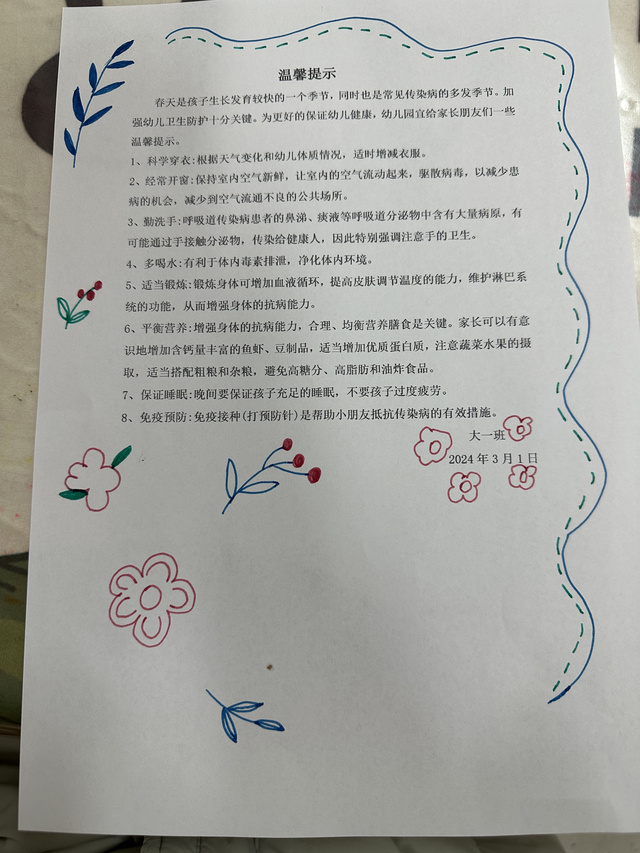 温馨提示
春天是孩子生长发育较快的一个季节，同时也是常见传染病的多发季节。加
强幼儿卫生防护十分关键。为更好的保证幼儿健康，幼儿园宣给家长朋友们一些
温馨提示。
1、科学穿衣:根据天气变化和幼儿体质情况，适时增减衣服。
2、经常开窗:保持室内空气新鲜，让室内的空气流动起来，驱散病毒，以减少患
病的机会，减少到空气流通不良的公共场所。
3、勤洗手:呼吸道传染病患者的鼻涕、痰液等呼吸道分泌物中含有大量病原，有
可能通过手接触分泌物，传染给健康人，因此特别强调注意手的卫生。
4、多喝水:有利于体内毒素排泄，净化体内环境。
5、适当锻炼:锻炼身体可增加血液循环，提高皮肤调节温度的能力，维护淋巴系
统的功能，从而增强身体的抗病能力。
6、平衡营养:增强身体的抗病能力，合理、均衡营养膳食是关键。家长可以有意
识地增加含钙量丰富的鱼虾、豆制品，适当增加优质蛋白质，注意蔬菜水果的摄
取，适当搭配粗粮和杂粮，避免高糖分、高脂肪和油炸食品。
7、保证睡眠:晚间要保证孩子充足的睡眠，不要孩子过度疲劳。
8、免疫预防:免疫接种(打预防针)是帮助小朋友抵抗传染病的有效措施。
大一班
2024 年 3 月 1 日